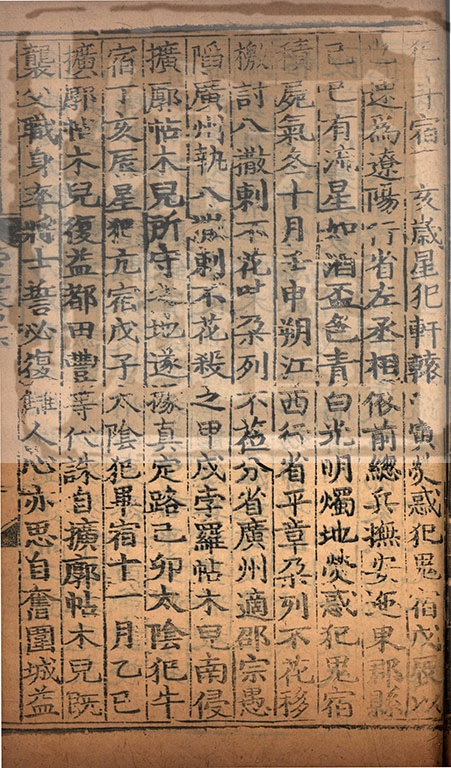 井宿亥歲星犯軒轅寅熒惑犯鬼宿戊辰以
速為遼陽行省左丞相依前總兵撫安迤東郡縣
己巳有流星如酒盃色青白光明燭地熒惑犯鬼宿
積屍氣冬十月壬申朔江西行省平章朶列不花移
檄討八撒剌不花時朶列不花分省廣州適邵宗愚
陷廣州執八撒剌不花殺之甲戌孛羅帖木兒南侵
擴廓帖木兒所守之地遂據真定路己卯太陰犯牛
宿丁亥辰星犯亢宿戊子太陰犯畢宿十一月乙巳
擴廓帖木兒復益都田豐等伏誅自擴廓帖木兒既
襲父職身率將士誓必復讎人心亦思自奮圍城益